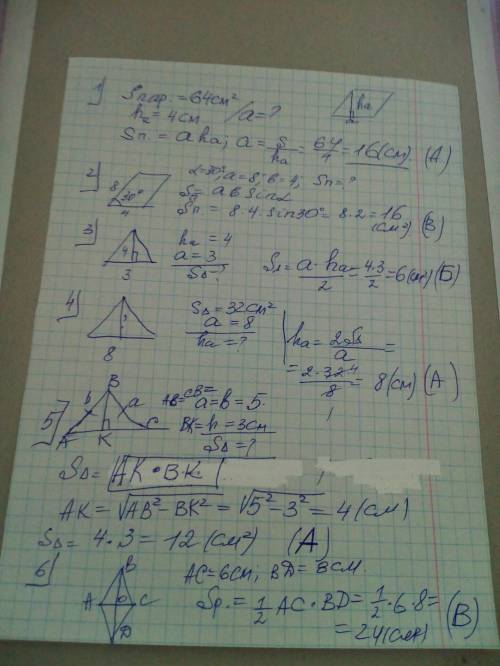 1) Sпар. = 64см²
hₐ = 4см / a = ?
hₐ
a
Sп. = a hₐ; a = S/hₐ = 64/4 = 16(см) (А)
2) α=30°; a=8; b=4; Sп=?
8 30° 4
S = a b sinα
Sп = 8·4·sin30° = 8·2 = 16 (см²) (В)
3) hₐ = 4
4
a = 3
3
SΔ - ?
SΔ = a·hₐ/2 = 4·3/2 = 6(см²) (Б)
4) SΔ = 32см²
a = 8
8
hₐ = ?
hₐ = 2·S/a =
= 2·32/8 = 8(см) (А)
5) B b a A K C
AB=CB= a=b=5.
BK= h = 3см
SΔ = ?
SΔ = AK·BK
AK = √AB² – BK² = √5² – 3² = 4 (см)
SΔ = 4·3 = 12 (см²) (А)
6) AC=6см; BD=8см.
B A O C D
Sр. = 1/2 AC·BD = 1/2·6·8 =
= 24(см²) (В)